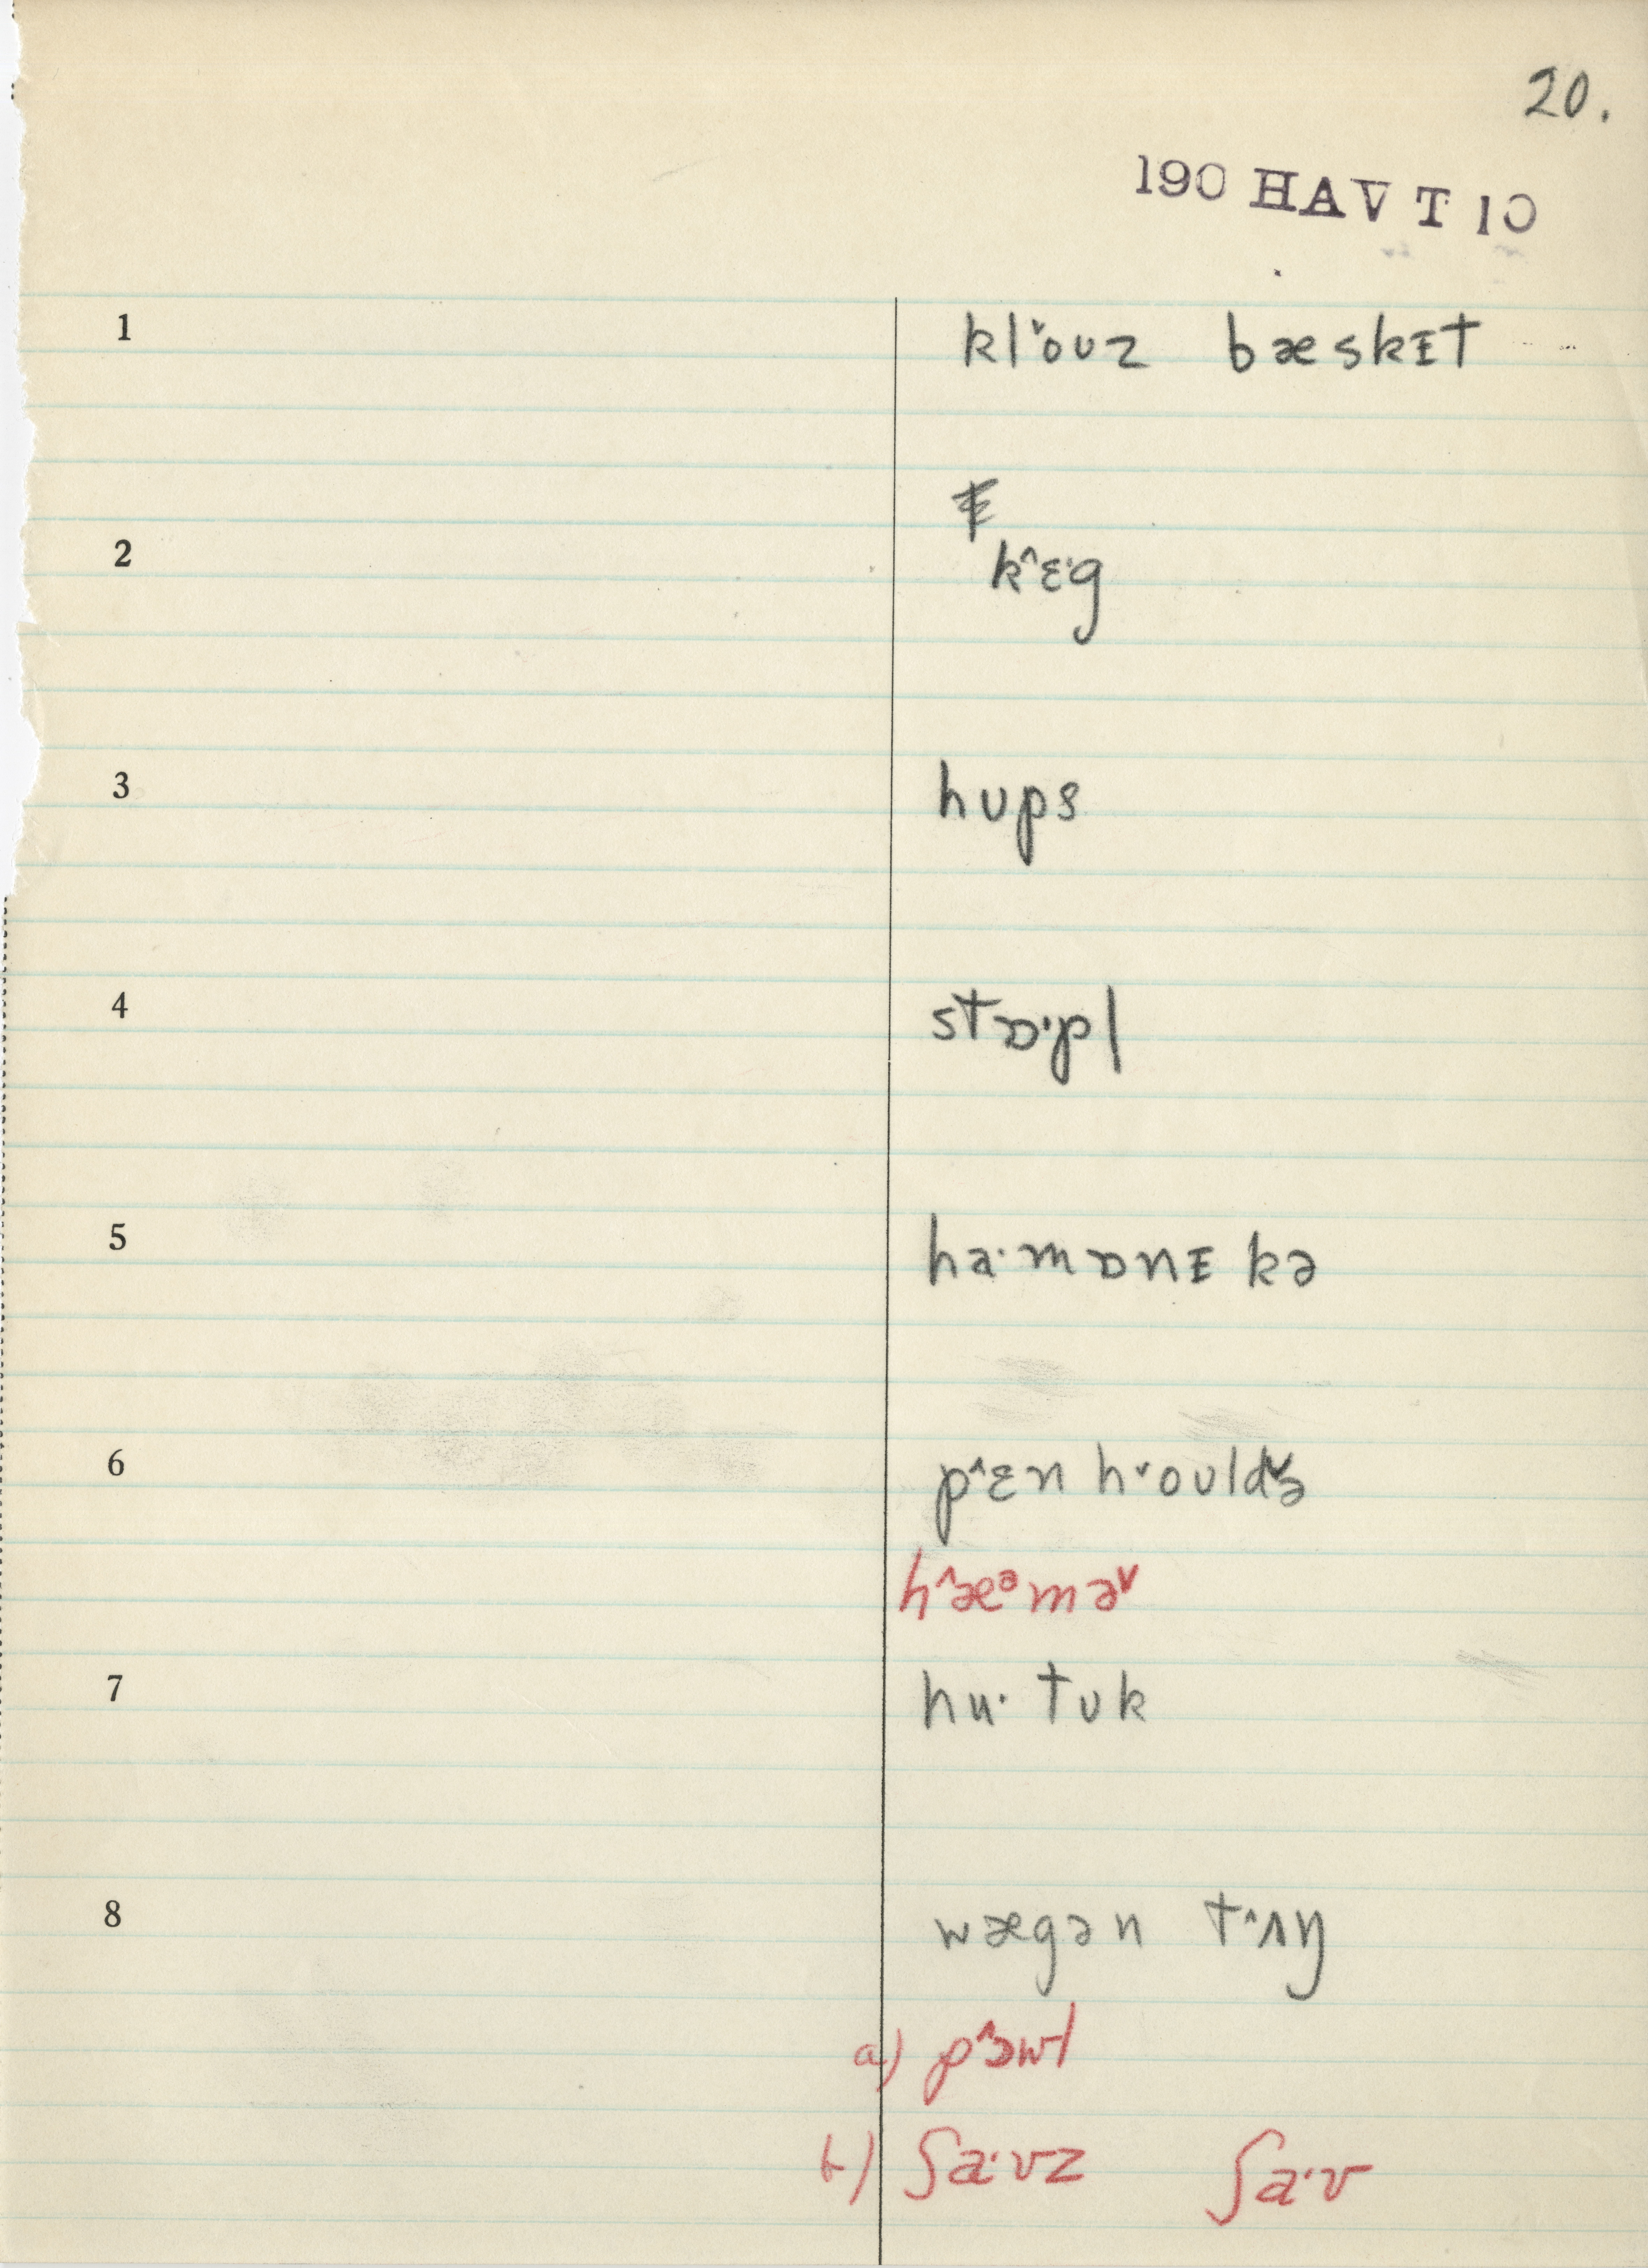 20.
190 HAV T 10
1 kl˅oʊz bæskɪt
2 k^ɛ·g
3 hʊps
4 stɒ·pl
5 ha·mɒnɪkə
6 p^ɛn h˅oʊldə˅
h^æᵊmə˅
7 hu· tʊk
8 wægən t^ʌŋ
a) p^ɔwl
b) ʃa·vz ʃa·v